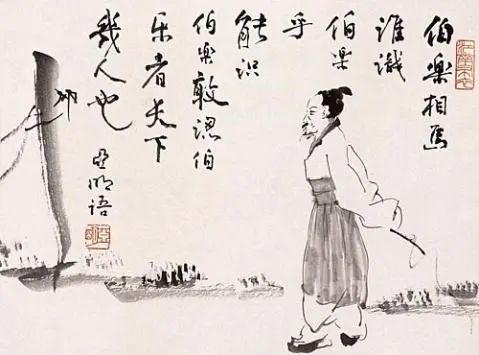 伯樂相馬
誰識
伯樂
乎
能识
伯樂敢認伯
乐者天下
幾人也
亞明語